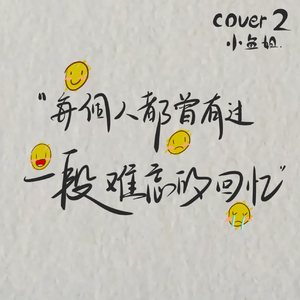 cover 2
小鱼姐.
"每個人都曾有过
一段难忘的回忆"